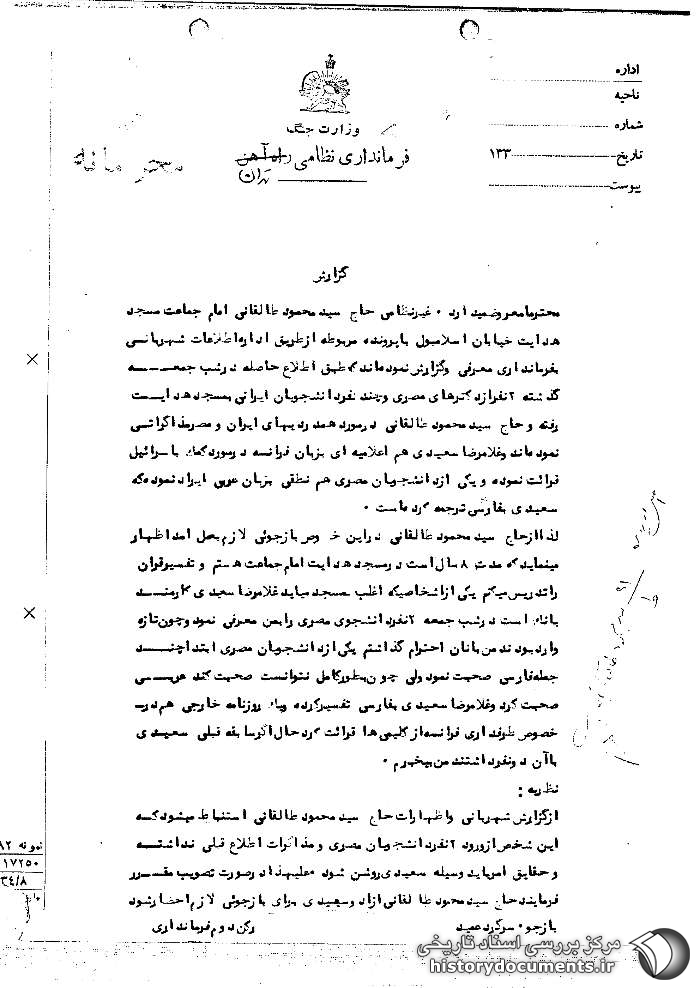 اداره
ناحیه
شماره
تاریخ ۱۳۳
پیوست
وزارت جنگ
فرمانداری نظامی راه آهن
تهران
محترمانه
گزارش
محترما معروضمیدارد ۰ غیرنظامی حاج سید محمود طالقانی امام جماعت مسجد
هدایت خیابان اسلامبول باپرونده مربوطه ازطریق اداره اطلاعات شهربانی
بفرمانداری معرفی وگزارش نموده‌اند که طبق اطلاع حاصله درشب جمعه
گذشته ۲نفرازدکترهای مصری وچند نفردانشجویان ایرانی بمسجد هدایت
رفته و حاج سید محمود طالقانی درمورد همدردیهای ایران و مصرمذاکراتی
نموده‌اند وغلامرضا سعیدی هم اعلامیه ای بزبان فرانسه درمورد کمک باسرائیل
قرائت نموده و یکی ازدانشجویان مصری هم نطقی بزبان عربی ایراد نموده که
سعیدی بفارسی ترجمه کرده‌است ۰
لذا ازحاج سید محمود طالقانی دراین خصوص بازجوئی لازم بعمل آمد اظهار
مینماید که مدت ۸ سال است درمسجد هدایت امام جماعت هستم و تفسیرقران
راتدریس میکنم یکی ازاشخاصیکه اغلب بمسجد میاید غلامرضا سعیدی کارمند
بانک است درشب جمعه ۲نفردانشجوی مصری رابمن معرفی نمود وچون تازه
وارد بودند من بانان احترام گذاشتم یکی ازدانشجویان مصری ابتدا چند
جمله فارسی صحبت نمود ولی چون بطورکامل نتوانست صحبت کند عربی
صحبت کرد وغلامرضا سعیدی بفارسی تفسیرکرده ویک روزنامه خارجی هم در
خصوص طرفداری فرانسه ازکلیمی ها قرائت کرد حال اگرسابقه قبلی سعیدی
باآن دونفرداشتند من بیخبرم ۰
نظریه :
ازگزارش شهربانی واظهارات حاج سید محمود طالقانی استنباط میشود که
این شخص ازورود ۲نفردانشجویان مصری و مذاکرات اطلاع قبلی نداشته
و حقایق امرباید وسیله سعیدی روشن شود علیهذا درصورت تصویب مقرر
فرمایند حاج سید محمود طالقانی ازاد وسعیدی برای بازجوئی لازم احضارشود
بازجو ۰ سرگرد عمید رکن دوم فرمانداری
نمونه ۸۲
۱۷۲۵۰
۳۴/۸
مرکز بررسی اسناد تاریخی
historydocuments.ir